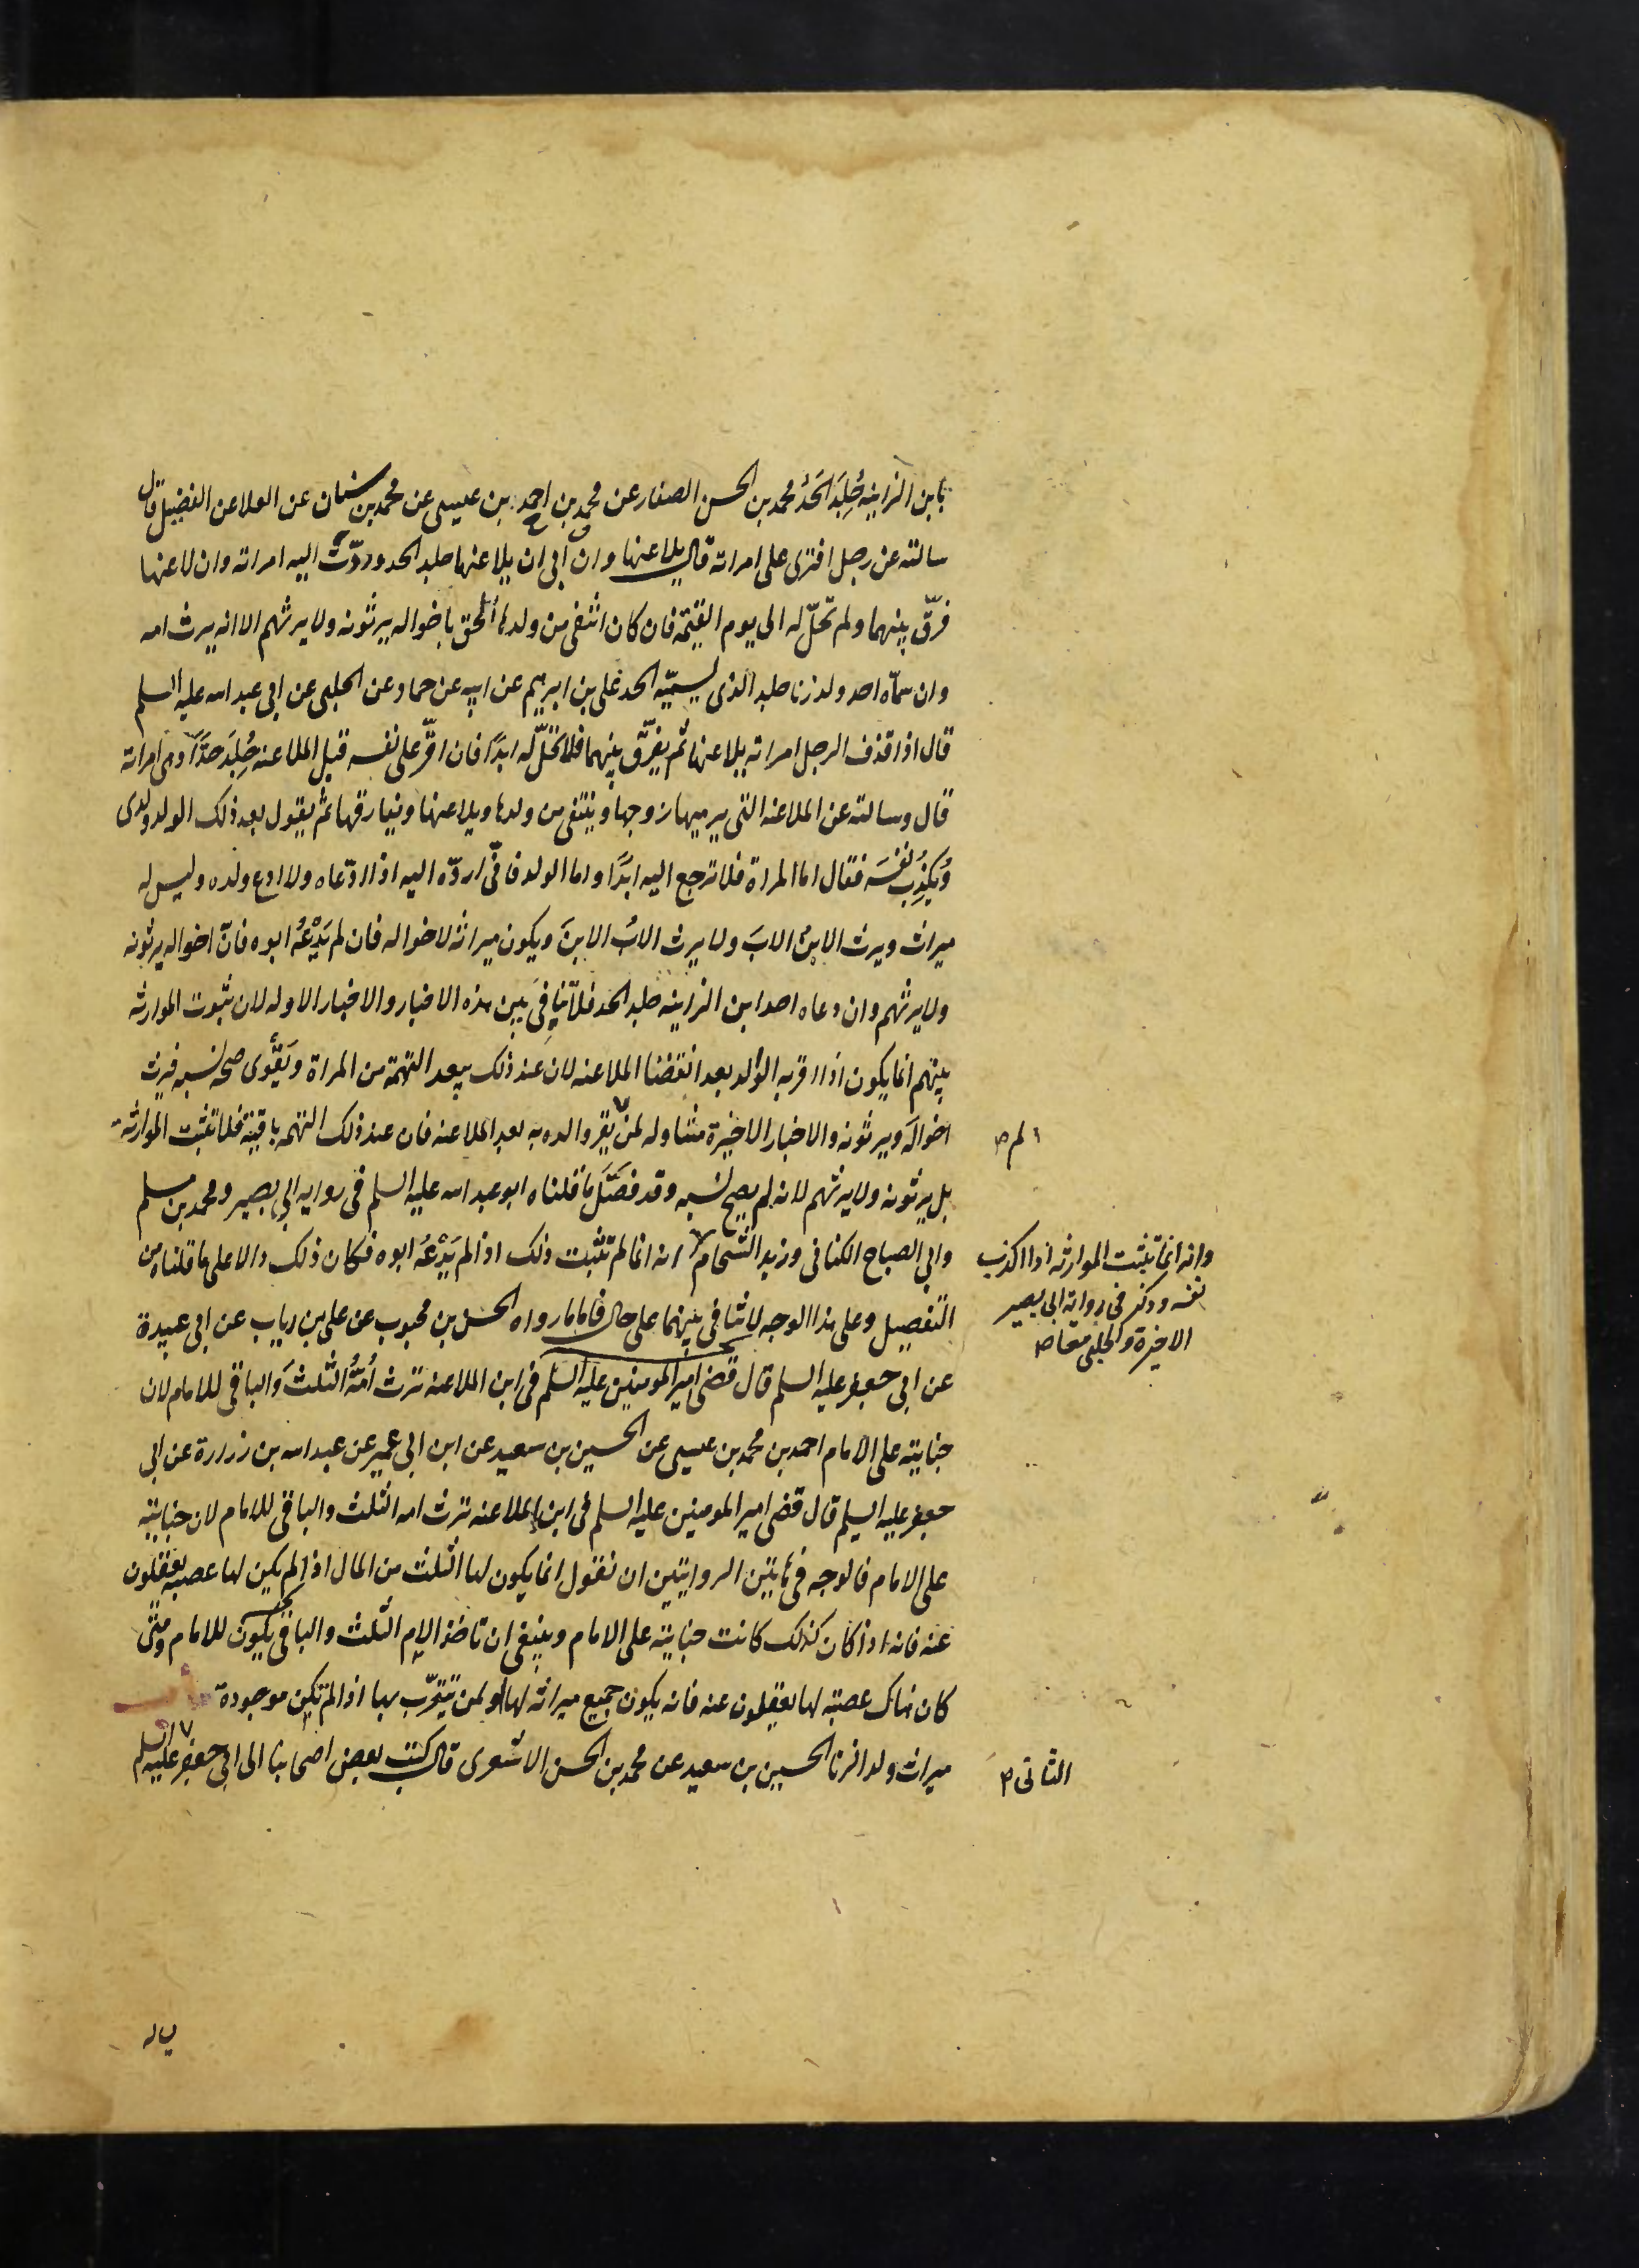 بابن الزانية جُلِدَ الحَدُ محمد بن الحسن الصفار عن محمد بن احمد بن عيسى عن محمد بن سنان عن العلا عن الفضيل قال
سالته عن رجل افترى على امراته قال يلاعنها وان ابى ان يلاعنها جلد الحد وردّت اليه امراته وان لاعنها
فرّق بينهما ولم تحلّ له الى يوم القيمة فان كان انتفى من ولدها أُلحق باخواله يرثونه ولا يرثهم الا انه يرث امه
وان سمّاه احد ولد زنا جلد الذى يسميّه الحد على بن ابرهيم عن ابيه عن حماد عن الحلبى عن ابى عبد الله عليه السلم
قال اذا قذف الرجل امراته يلاعنها ثم يفرّق بينهما فلا تحلّ له ابدًا فان اقرّ على نفسه قبل الملاعنه جُلِدَ حدًّا وهى امراته
قال وسالته عن الملاعنه التى يرميها زوجها وينتفى من ولدها ويلاعنها ويفارقها ثم يقول بعد ذلك الولد ولدى
وُيكذِب نفسَه فقال اما المراة فلا ترجع اليه ابدًا واما الولد فانّى اردّه اليه اذا ادّعاه ولا ادع ولده وليس له
ميراث ويرث الابنُ الابَ ولا يرث الابُ الابنَ ويكون ميراثه لاخواله فان لم يَدْعُهُ ابوه فانّ اخواله يرثونه
ولا يرثهم وان دعاه احد ابن الزانيه جلد الحد فلا تنافِىَ بين هذه الاخبار والاخبار الاوله لان ثبوت الموارثه
بينهم انما يكون اذا اقر به الوالد بعد انقضا الملاعنه لان عند ذلك يبعد التهمة من المراة ويَقْوى صحه نسبه فيرث
اخوالَه ويرثونه والاخبار الاخيرة متناوله لمن يقر والده به بعد الملاعنه فان عند ذلك التهمه باقية فلا تثبت الموارثه
الم ص
بل يرثونه ولا يرثهم لانه لم يصح نسبه وقد فصَّلَ ما قلناه ابو عبد الله عليه السلم فى روايه ابى بصير ومحمد بن مسلم
وابى الصباح الكنانى وزيد الشحام انه انما لم تثبت ذلك اذا لم يَدْعُهُ ابوه فكان ذلك دالا على ما قلناه من
وانه انما تثبت الموارثه اذا اكذب
نفسه وذكر فى روايه ابى بصير
الاخيرة والحلبى معا ص
التفصيل وعلى هذا الوجه لا تنافى بينهما على حال فاما ما رواه الحسن بن محبوب عن على بن رياب عن ابى عبيدة
عن ابى جعفر عليه السلم قال قضى امير المومنين عليه السلم فى ابن الملاعنه ترث اُمّهُ الثلثَ والباقى للامام لان
جنايته على الامام احمد بن محمد بن عيسى عن الحسين بن سعيد عن ابن ابى عمير عن عبد الله بن زرارة عن ابى
جعفر عليه السلم قال قضى امير المومنين عليه السلم فى ابن الملاعنه ترث امه الثلث والباقى للامام لان جنايته
على الامام فالوجه فى هاتين الروايتين ان نقول انما يكون لها الثلث من المال اذا لم يكن لها عصبه يعقلون
عنه فانه اذا كان كذلك كانت جنايته على الامام وينبغى ان تاخذ الام الثلث والباقى يكون للامام ومتى
كان هناك عصبه لها يعقلون عنه فانه يكون جميع ميراثه لها او لمن يتقرّب بها اذا لم تكن موجودة
ميراث ولد الزنا الحسين بن سعيد عن محمد بن الحسن الاشعرى قال كتب بعض اصحابنا الى ابى جعفر عليه السلم
الثانى ص